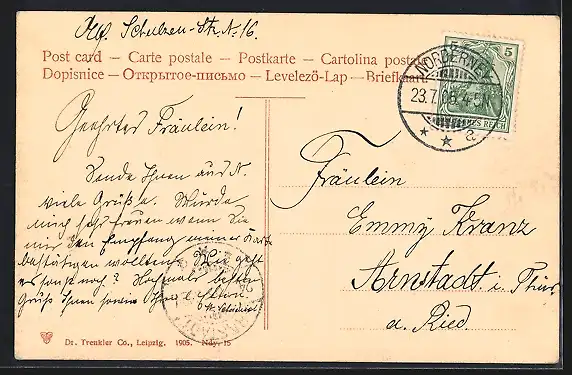 Schulzen-Str. N. 16.
Post card — Carte postale — Postkarte — Cartolina postale
Dopisnice — Открытое-письмо — Levelező-Lap — Briefkaart
NORDERNEY
23.7.
4-5N
a
5
Geehrtes Fräulein!
Sende Ihnen aus N.
viele Grüße. Würde
mich sehr freuen wenn Sie
mir den Empfang meiner Karte
bestätigen wollten. Wie geht
es sonst noch? Nochmals besten
Gruß Ihnen sowie Ihren l. Eltern.
Fräulein
Emmy Kranz
Arnstadt i. Thür.
a. Ried.
Dr. Trenkler Co., Leipzig. 1905. Ndy. 15